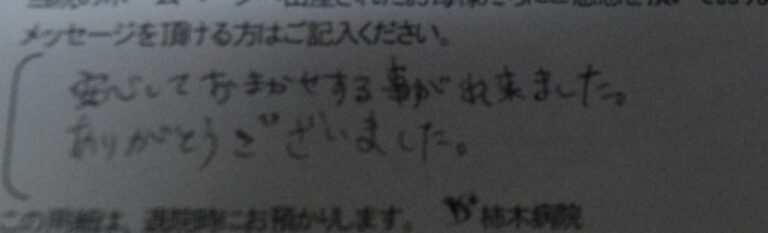 メッセージを頂ける方はご記入ください。
安心しておまかせする事が出来ました。
ありがとうございました。
この用紙は、退院時にお預かりします。 柿木病院